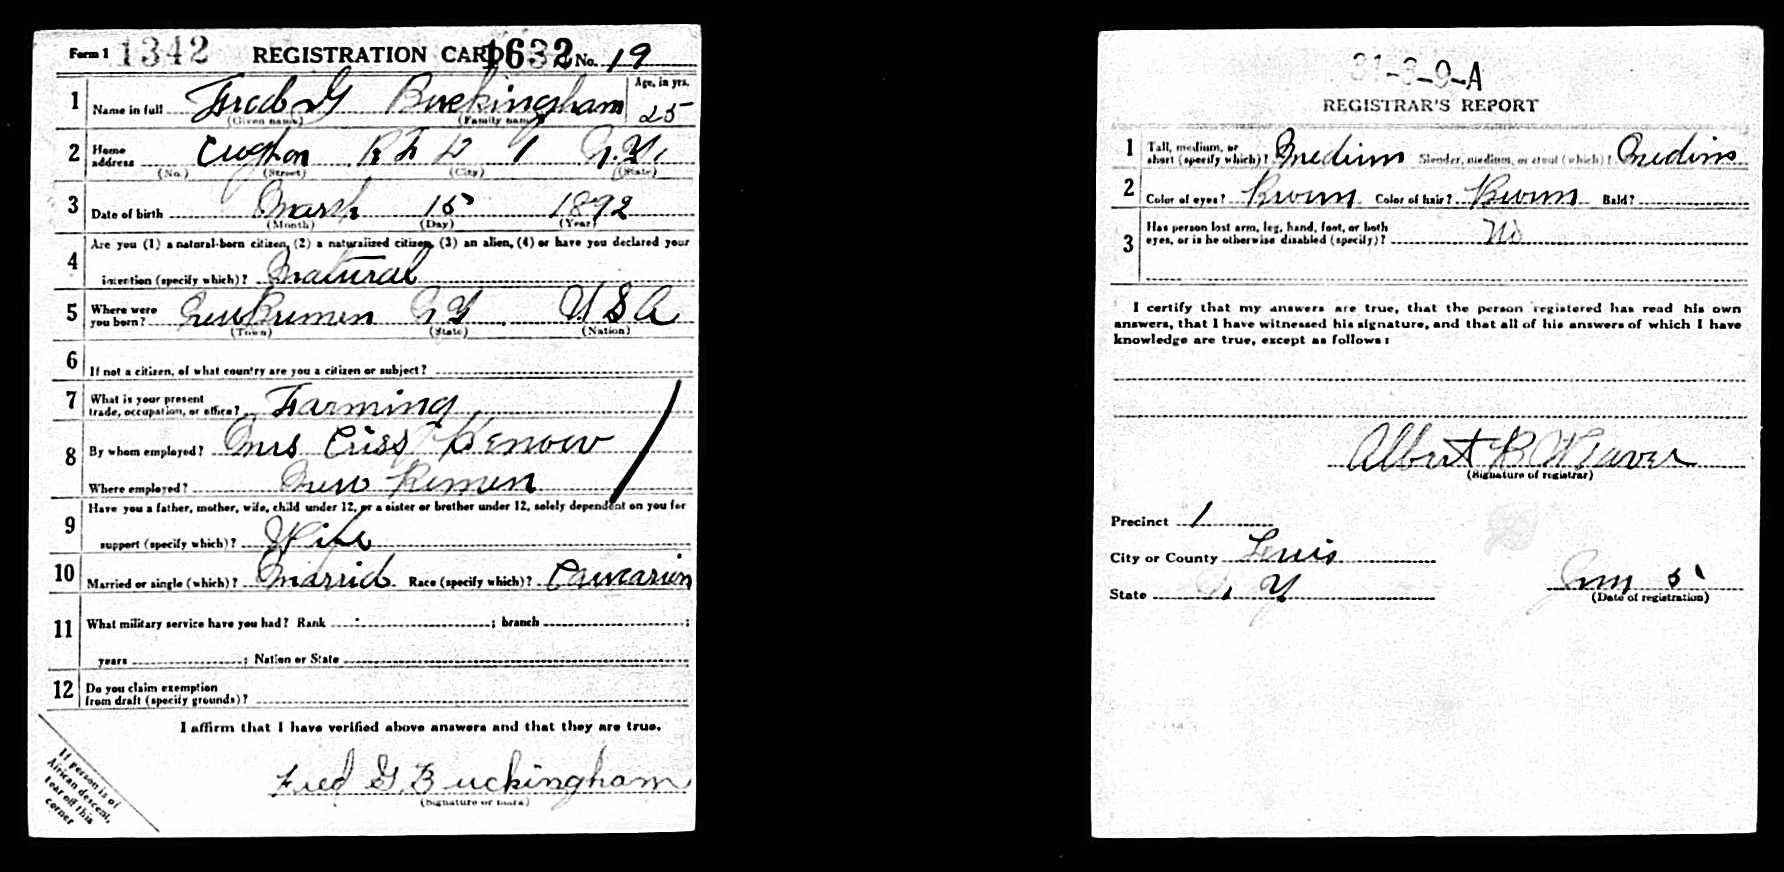 Form 1 1342 REGISTRATION CARD 1632 No. 19
1 Name in full Fred G Buckingham Age, in yrs. 25
(Given name) (Family name)
2 Home address Croghon R F D 1 N.Y.
(No.) (Street) (City) (State)
3 Date of birth Marsh 15 1892
(Month) (Day) (Year)
Are you (1) a natural-born citizen, (2) a naturalized citizen, (3) an alien, (4) or have you declared your
4 intention (specify which)? Natural
5 Where were you born? New Bremen N Y U S A
(Town) (State) (Nation)
6 If not a citizen, of what country are you a citizen or subject?
7 What is your present trade, occupation, or office? Farming
8 By whom employed? Mrs
Where employed? New Bremen
Have you a father, mother, wife, child under 12, or a sister or brother under 12, solely dependent on you for
9 support (specify which)? Wife
10 Married or single (which)? Married Race (specify which)? Caucasion
11 What military service have you had? Rank ; branch ;
years ; Nation or State
12 Do you claim exemption from draft (specify grounds)?
I affirm that I have verified above answers and that they are true.
Fred G. Buckingham
(Signature or mark)
If person is of
African descent,
tear off this
corner
31-3-9-A
REGISTRAR'S REPORT
1 Tall, medium, or short (specify which)? Medium Slender, medium, or stout (which)? Medium
2 Color of eyes? Brown Color of hair? Brown Bald?
3 Has person lost arm, leg, hand, foot, or both eyes, or is he otherwise disabled (specify)? No
I certify that my answers are true, that the person registered has read his own
answers, that I have witnessed his signature, and that all of his answers of which I have
knowledge are true, except as follows:
Albert B Weaver
(Signature of registrar)
Precinct 1
City or County Lewis
State N Y Jun 5
(Date of registration)